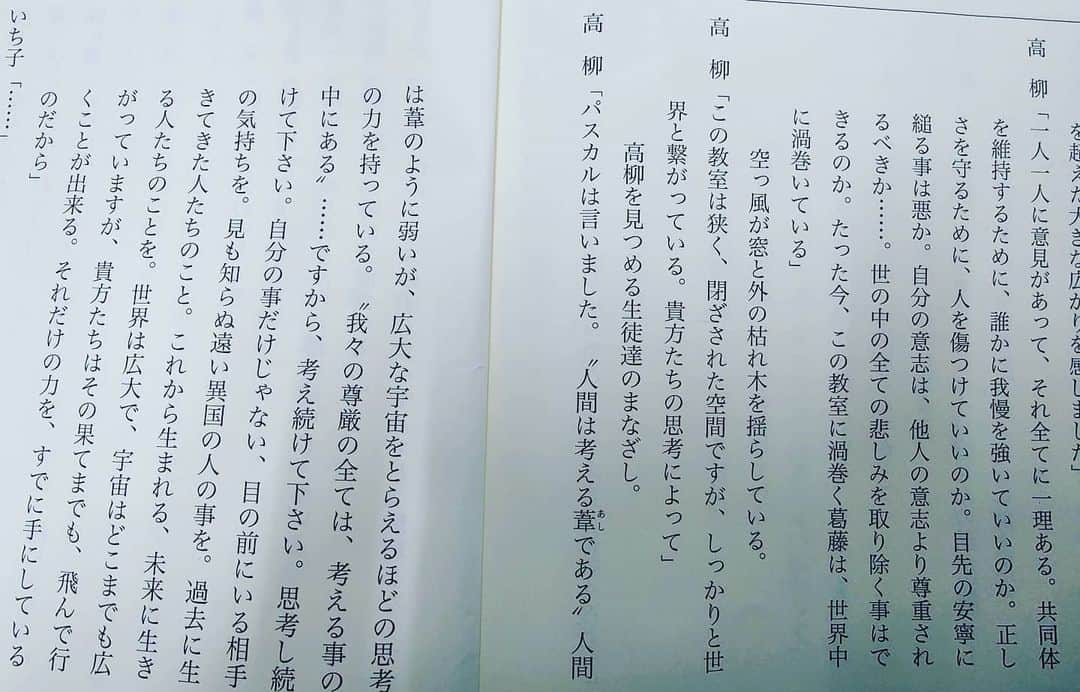 を超えた大きな広がりを感じました」
高　柳「一人一人に意見があって、それ全てに一理ある。共同体
を維持するために、誰かに我慢を強いていいのか。正し
さを守るために、人を傷つけていいのか。目先の安寧に
縋る事は悪か。自分の意志は、他人の意志より尊重され
るべきか……。世の中の全ての悲しみを取り除く事はで
きるのか。たった今、この教室に渦巻く葛藤は、世界中
に渦巻いている」
空っ風が窓と外の枯れ木を揺らしている。
高　柳「この教室は狭く、閉ざされた空間ですが、しっかりと世
界と繋がっている。貴方たちの思考によって」
高柳を見つめる生徒達のまなざし。
高　柳「パスカルは言いました。〝人間は考える葦あしである〟人間
は葦のように弱いが、広大な宇宙をとらえるほどの思考
の力を持っている。〝我々の尊厳の全ては、考える事の
中にある〟……ですから、考え続けて下さい。思考し続
けて下さい。自分の事だけじゃない、目の前にいる相手
の気持ちを。見も知らぬ遠い異国の人の事を。過去に生
きてきた人たちのこと。これから生まれる、未来に生き
る人たちのことを。世界は広大で、宇宙はどこまでも広
がっていますが、貴方たちはその果てまでも、飛んで行
くことが出来る。それだけの力を、すでに手にしている
のだから」
いち子「……」